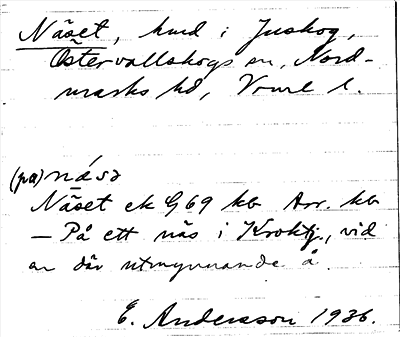 Näset, hmd i Juskog,
Östervallskogs sn, Nord-
marks hd, Vrml l.
(på) näsə
Näset ek G 69 kb Arr. kb
— På ett näs i Kroktj., vid
en där utmynnande å.
E. Andersson 1936.